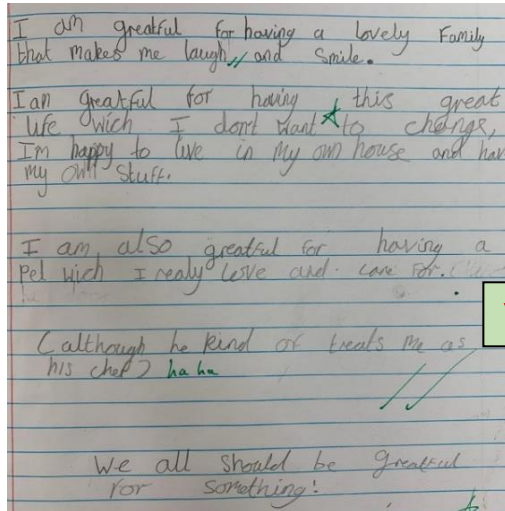 I am greatful for having a lovely Family
that makes me laugh and Smile.
I am greatful for having this great
life wich I don't want to change,
I'm happy to live in my own house and hav
my own stuff.
I am also greatful for having a
pet wich I realy love and care for.
(although he kind of treats me as
his chef) ha ha
We all should be greatful
for something!